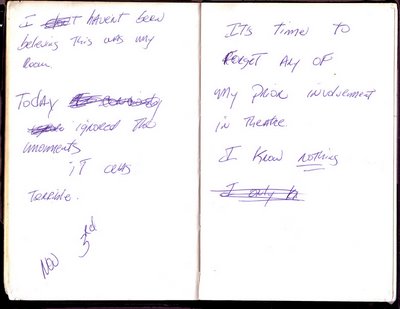 I havent been
believing this was my
room.
Today
ignored the
moments
it was
Terrible.
Nov 3rd
Its time to
Forget Any of
my prior involvement
in theatre.
I know nothing
I only